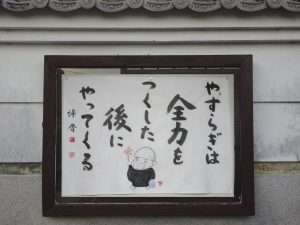 やすらぎは
全力を
つくした
後に
やってくる